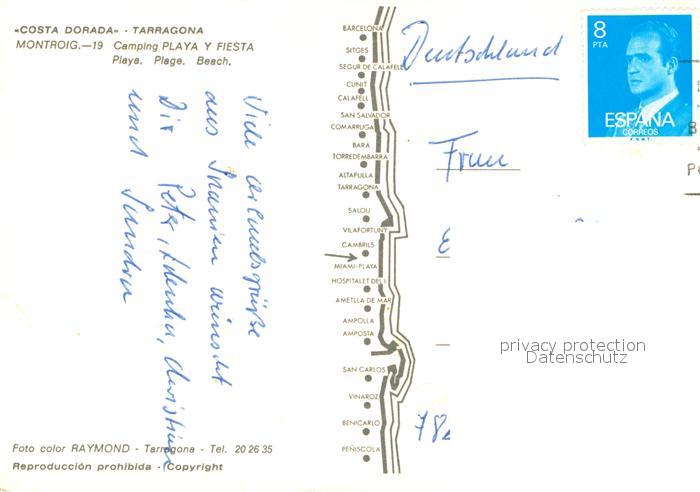 «COSTA DORADA» - TARRAGONA
MONTROIG.—19 Camping PLAYA Y FIESTA
Playa. Plage. Beach.
Viele Urlaubsgrüße
aus Spanien wünscht
Dir Peter, Christiane
und Sandra
Foto color RAYMOND - Tarragona - Tel. 20 26 35
Reproducción prohibida - Copyright
BARCELONA
SITGES
SEGUR DE CALAFELL
CUNIT
CALAFELL
SAN SALVADOR
COMARRUGA
BARA
TORREDEMBARRA
ALTAFULLA
TARRAGONA
SALOU
VILAFORTUNY
CAMBRILS
MIAMI-PLAYA
HOSPITALET DEL I.
AMETLLA DE MAR
AMPOLLA
AMPOSTA
SAN CARLOS
VINAROZ
BENICARLO
PEÑISCOLA
Deutschland
Frau
E
78
8
PTA
ESPAÑA
CORREOS
F.N.M.T.
privacy protection
Datenschutz